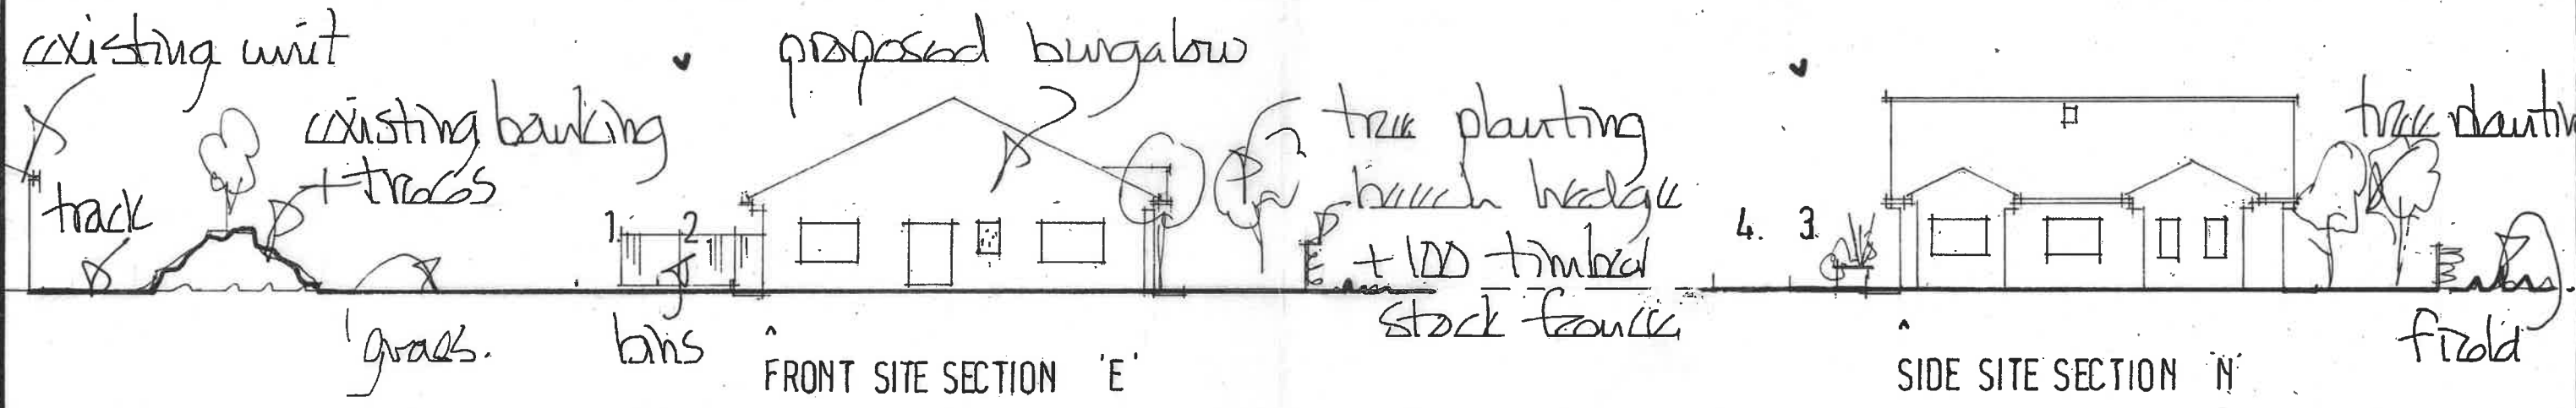 existing unit
existing banking
+ trees
track
grass.
1. 2.
bins
proposed bungalow
tree planting
beech hedge
+ 1.00 timber
stock fence
FRONT SITE SECTION 'E'
4. 3.
tree plantin
field
SIDE SITE SECTION 'N'